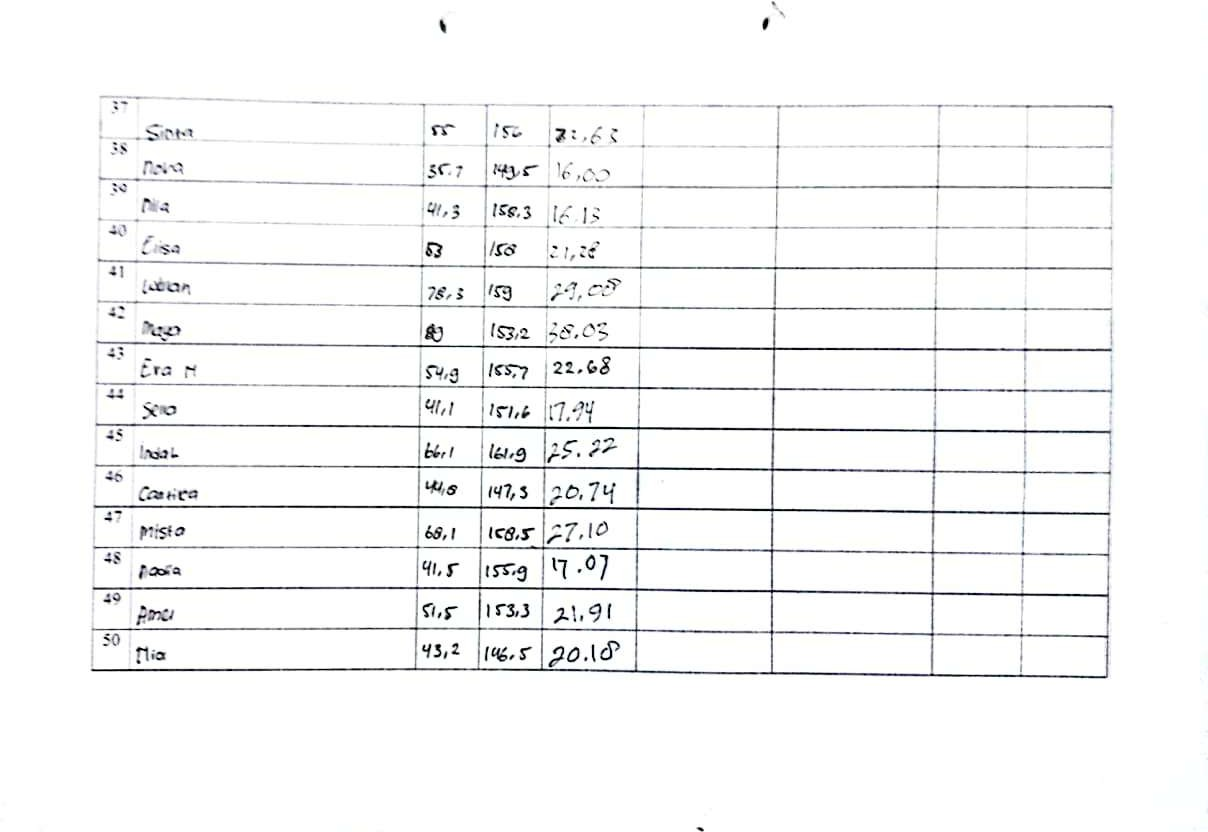 37 Sinta 55 156 22,63
38 Nova 35.7 149,5 16,00
39 Nia 41,3 158,3 16.13
40 Elisa 53 158 21,28
41 78,3 159 29,08
42 153,2 38.03
43 Eva M 54,9 155,7 22.68
44 41,1 151,6 17.94
45 Indah 66,1 161,9 25.22
46 Cantika 44,8 147,3 20.74
47 Mista 68,1 158,5 27.10
48 Nadia 41,5 155,9 17.07
49 Amel 51,5 153,3 21.91
50 Mia 43,2 146,5 20.18